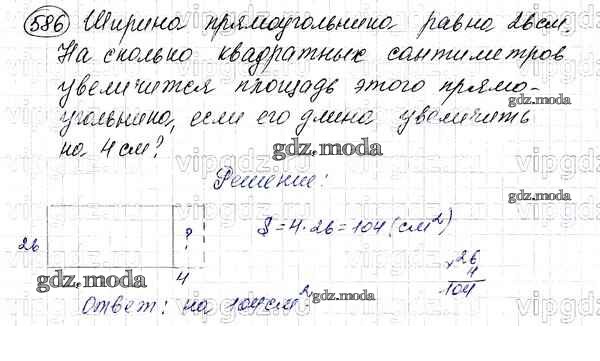 586 Ширина прямоугольника равна 26 см.
На сколько квадратных сантиметров
увеличится площадь этого прямо-
угольника, если его длину увеличить
на 4 см?
gdz.moda
gdz.moda
Решение:
gdz.moda
26 ? S = 4 · 26 = 104 (см²)
4
× 26
4
104
gdz.moda
Ответ: на 104 см²
gdz.moda